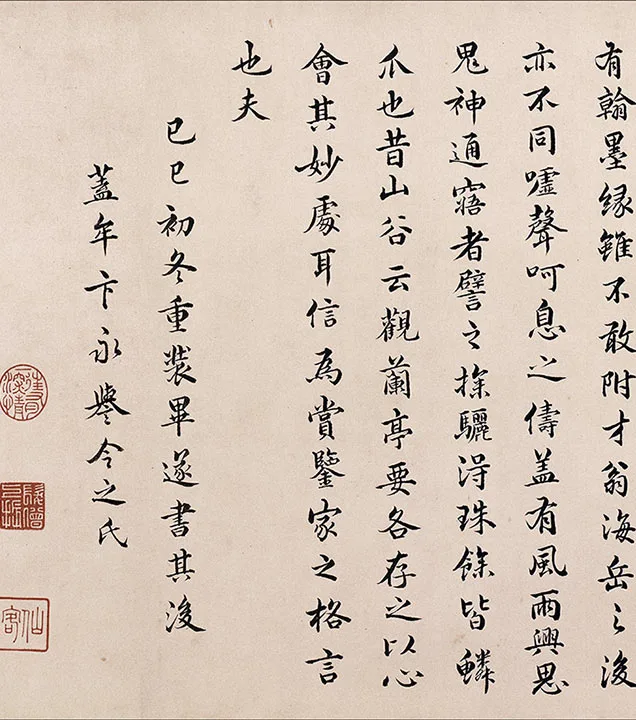 有翰墨緣雖不敢附才翁海岳之後
亦不同噓聲呵息之儔盖有風雨興思
鬼神通寤者譬之探驪得珠餘皆鱗
爪也昔山谷云觀蘭亭要各存之以心
會其妙處耳信為賞鑒家之格言
也夫
己巳初冬重裝畢遂書其後
蓋牟卞永譽令之氏
仙客